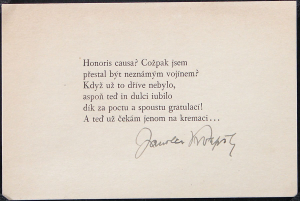 Honoris causa? Cožpak jsem
přestal být neznámým vojínem?
Když už to dříve nebylo,
aspoň teď in dulci iubilo
dík za poctu a spoustu gratulací!
A teď už čekám jenom na kremaci...
Jaroslav Kvapil